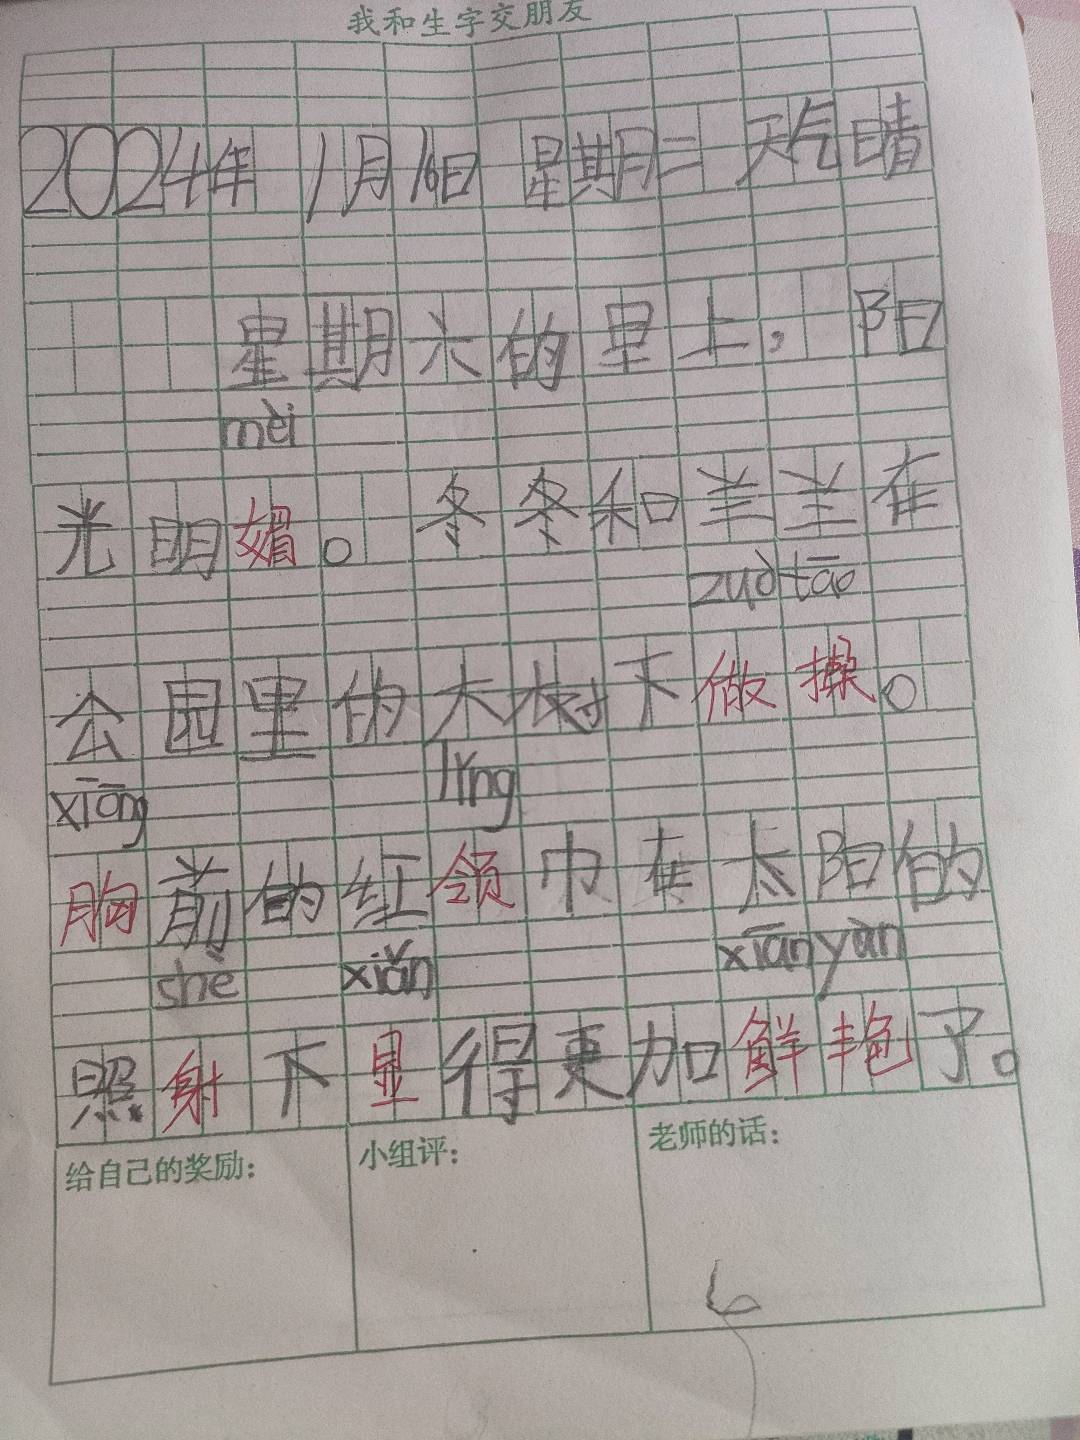 我和生字交朋友
2024年 1月16日 星期二 天气晴
星期六的早上，阳
mèi
光明媚。冬冬和羊羊在
zuò tāo
公园里的大树下做操。
xiōng lǐng
胸前的红领巾在太阳的
shè xiǎn xiān yàn
照射下显得更加鲜艳了。
给自己的奖励： 小组评： 老师的话：